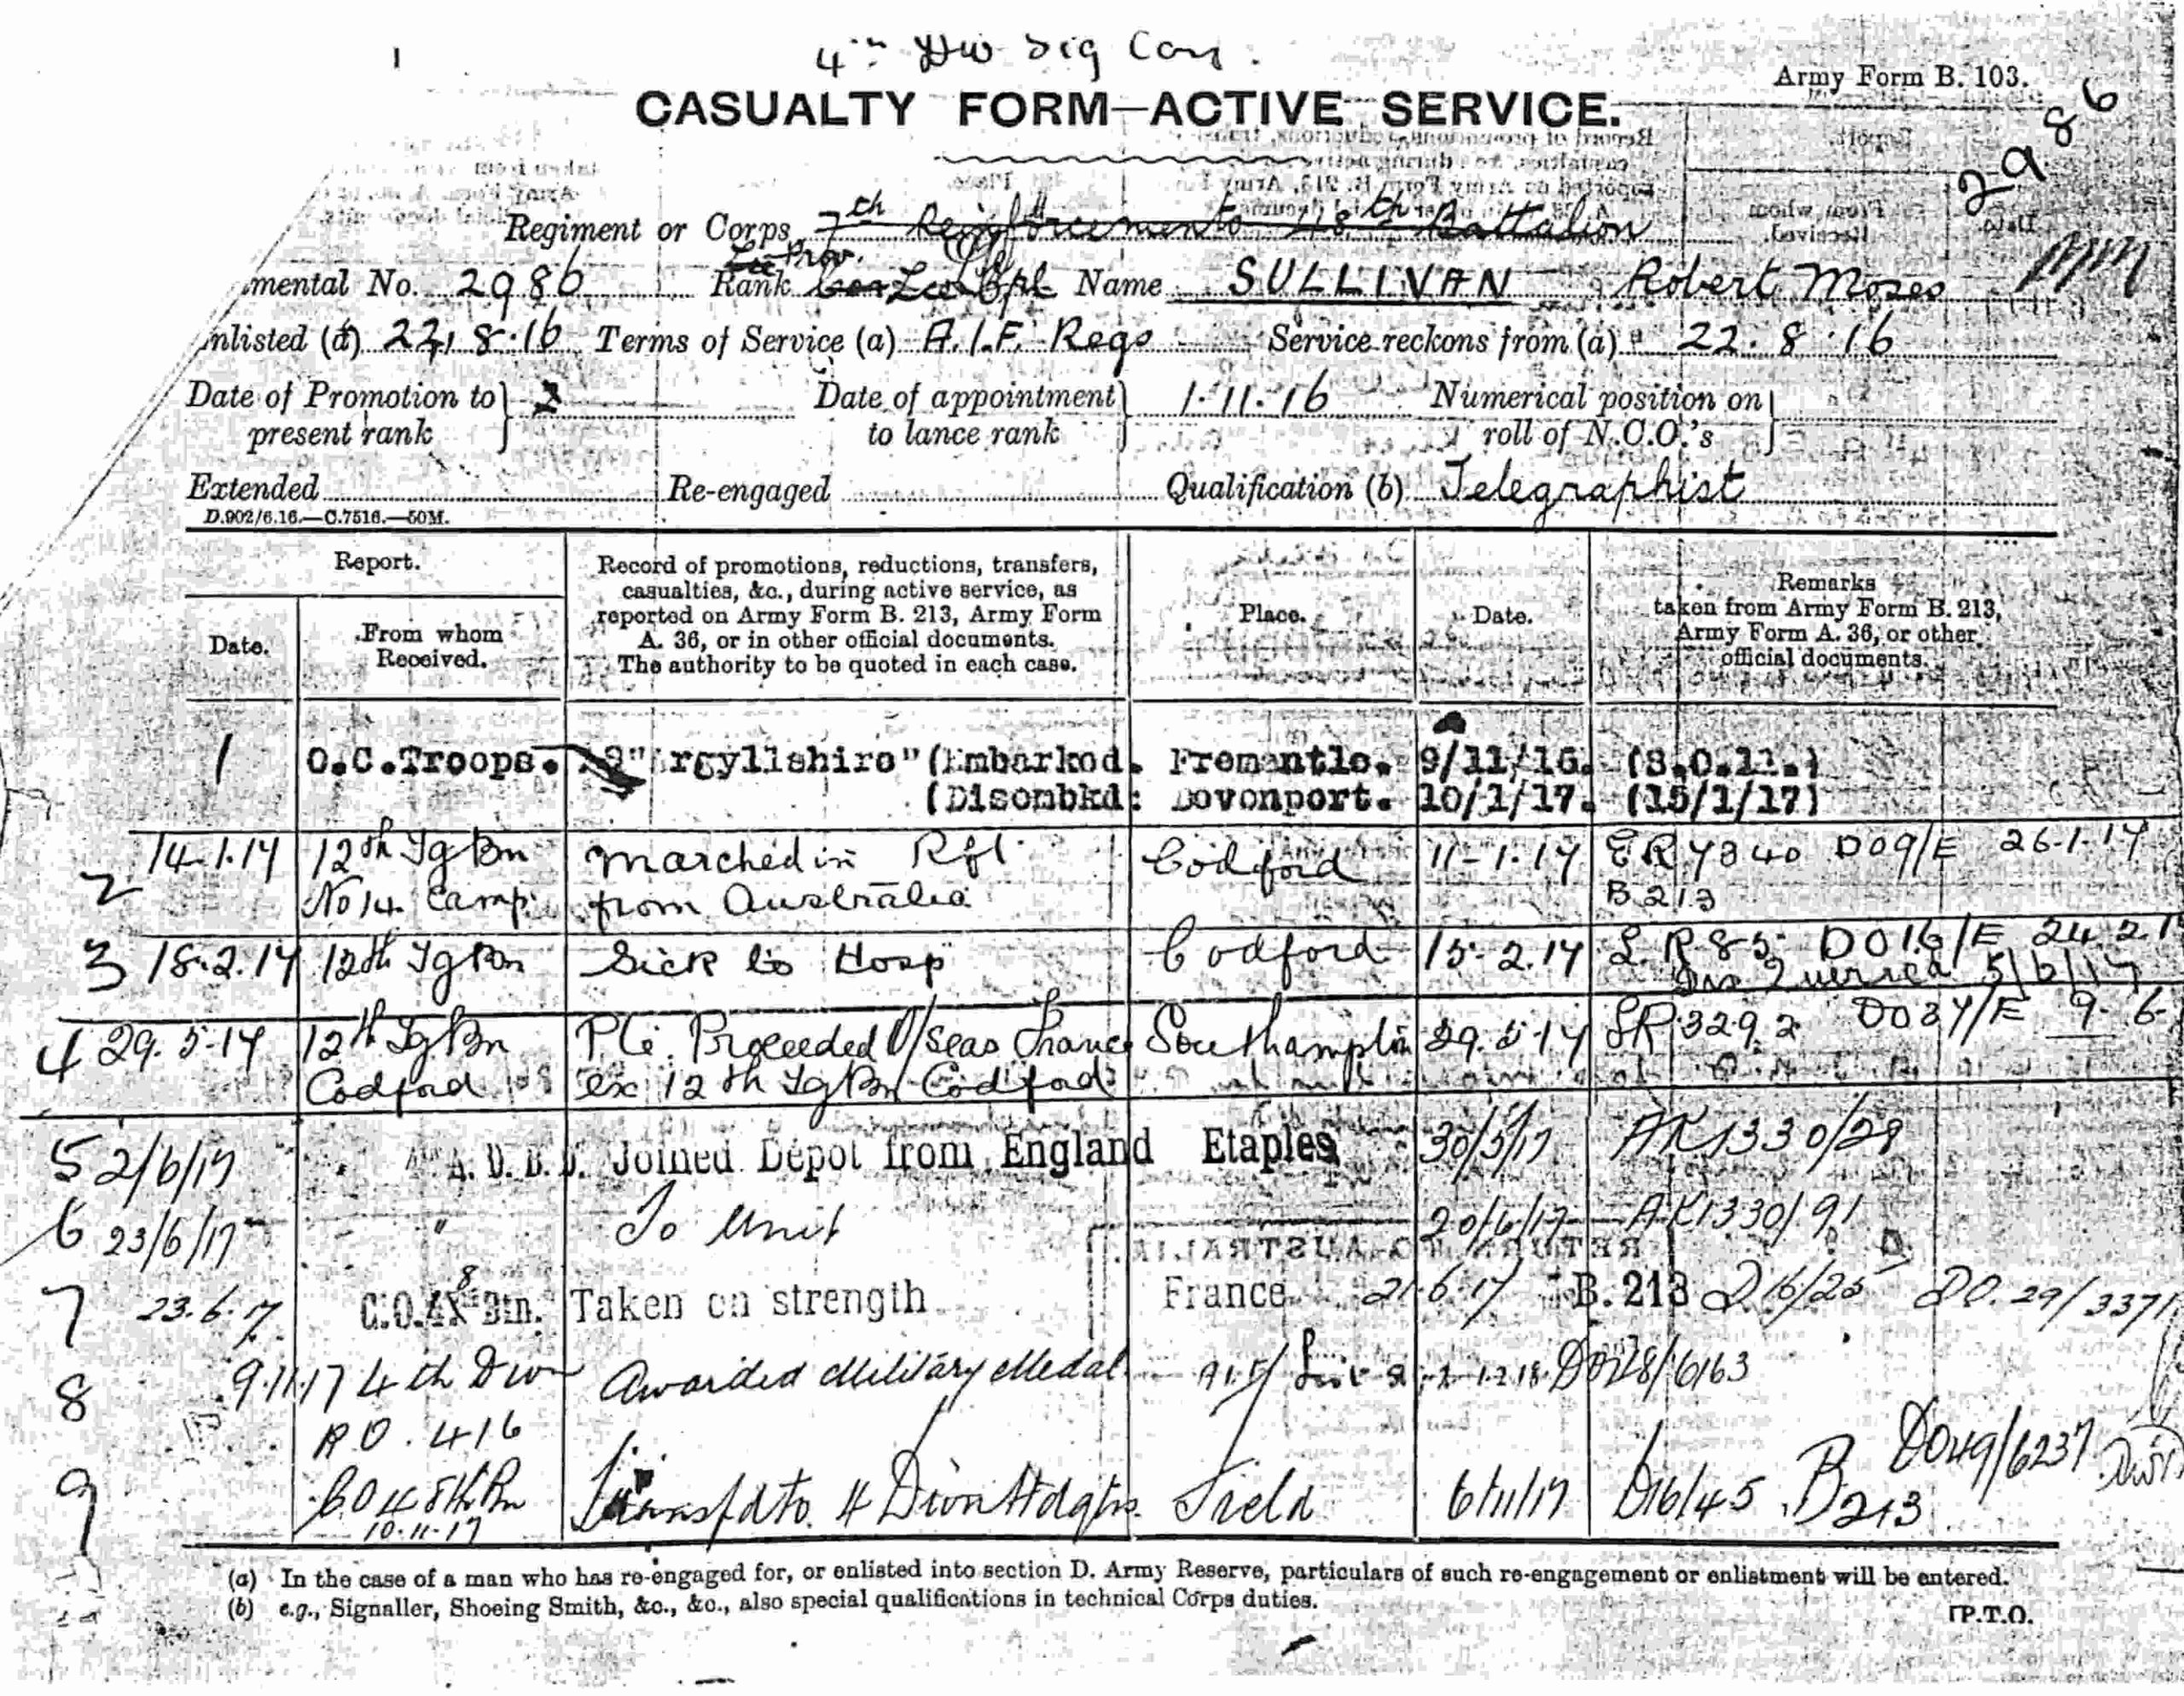 4th Div Sig Coy.
Army Form B. 103.
CASUALTY FORM—ACTIVE SERVICE.
2986
Regiment or Corps 7th Reinforcements 48th Battalion
mental No. 2986 Rank Cpl Name SULLIVAN Robert Moses
nlisted (a) 22.8.16 Terms of Service (a) A.I.F. Regs Service reckons from (a) 22.8.16
Date of Promotion to present rank
Date of appointment to lance rank 1.11.16
Numerical position on roll of N.C.O.'s
Extended Re-engaged Qualification (b) Telegraphist
D.902/6.16.—C.7516.—50M.
Report.
Date.
From whom Received.
Record of promotions, reductions, transfers,
casualties, &c., during active service, as
reported on Army Form B. 213, Army Form
A. 36, or in other official documents.
The authority to be quoted in each case.
Place.
Date.
Remarks
taken from Army Form B. 213,
Army Form A. 36, or other
official documents.
1 O.C.Troops. "Argyllshire" (Embarked. Fremantle. 9/11/16. (S.O.11.)
(Disembkd: Devonport. 10/1/17. (15/1/17)
2 14.1.17 12th Tg Bn marched in Rft Codford 11-1-17 ER 7840 DO9/E 26-1-17
No 14 Camp from Australia B213
3 18.2.17 12th Tg Bn Sick to Hosp Codford 15-2.17 DO16/E 24 2.1
4 29.5.17 12th Tg Bn Pte. Proceeded O/seas France Southampton 29.5.17 SR 3292 DO37/E 9.6.
Codford ex 12th Tg Bn Codford
5 2/6/17 A.D.B.D. Joined Depot from England Etaples 30/5/17 AK1330/29
6 23/6/17 " To Unit 20/6/17 AK1330/91
RETURN TO AUSTRALIA
7 23.6.17 C.O.48 Bn. Taken on strength France 21.6.17 B.213 D16/25 DO.29/3371
8 9.11.17 4th Divn Awarded Military Medal
R.O. 416
9 C.O 48th Bn Transfd to 4 Divn Hdqtrs. Field 6/11/17 D16/45 B213 DO49/6237
10.11.17
(a) In the case of a man who has re-engaged for, or enlisted into section D. Army Reserve, particulars of such re-engagement or enlistment will be entered.
(b) e.g., Signaller, Shoeing Smith, &c., &c., also special qualifications in technical Corps duties.
[P.T.O.